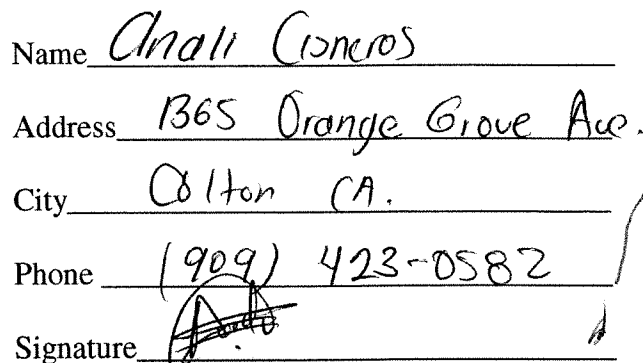 Name Anali Cisneros
Address 1365 Orange Grove Ave.
City Colton CA.
Phone (909) 423-0582
Signature